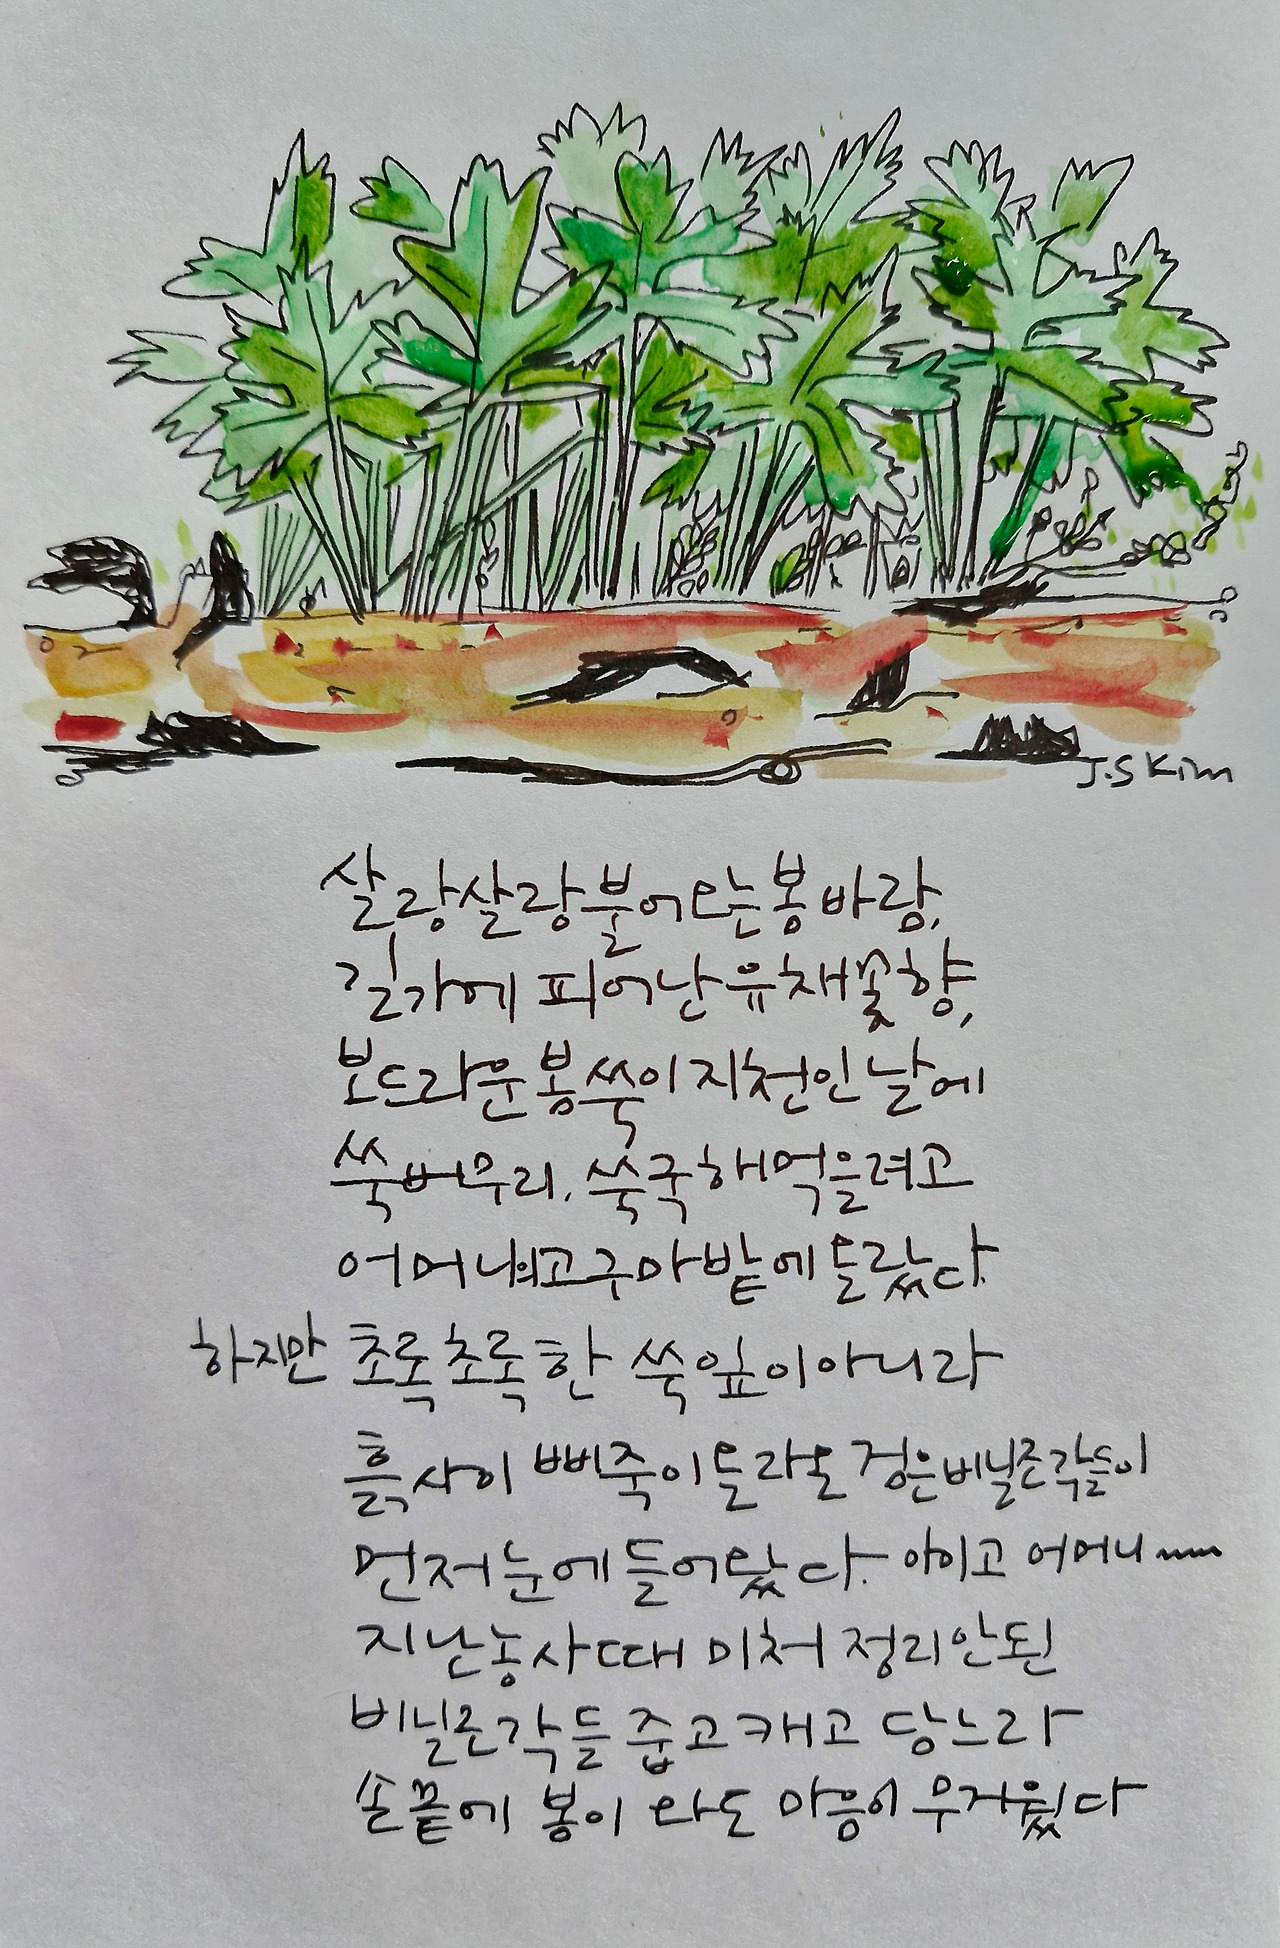 J.S Kim
살랑살랑 불어오는 봄바람,
길가에 피어난 유채꽃향,
보드라운 봄쑥이 지천인 날에
쑥버무리, 쑥국 해먹을려고
어머니의 고구마밭에 들렀다.
하지만 초록초록한 쑥잎이 아니라
흙사이 삐죽이 올라온 검은 비닐조각들이
먼저 눈에 들어왔다. 아이고 어머니~~~
지난 농사때 미처 정리 안된
비닐조각들 줍고 캐고 당느라
손끝에 봄이 와도 마음이 무거웠다